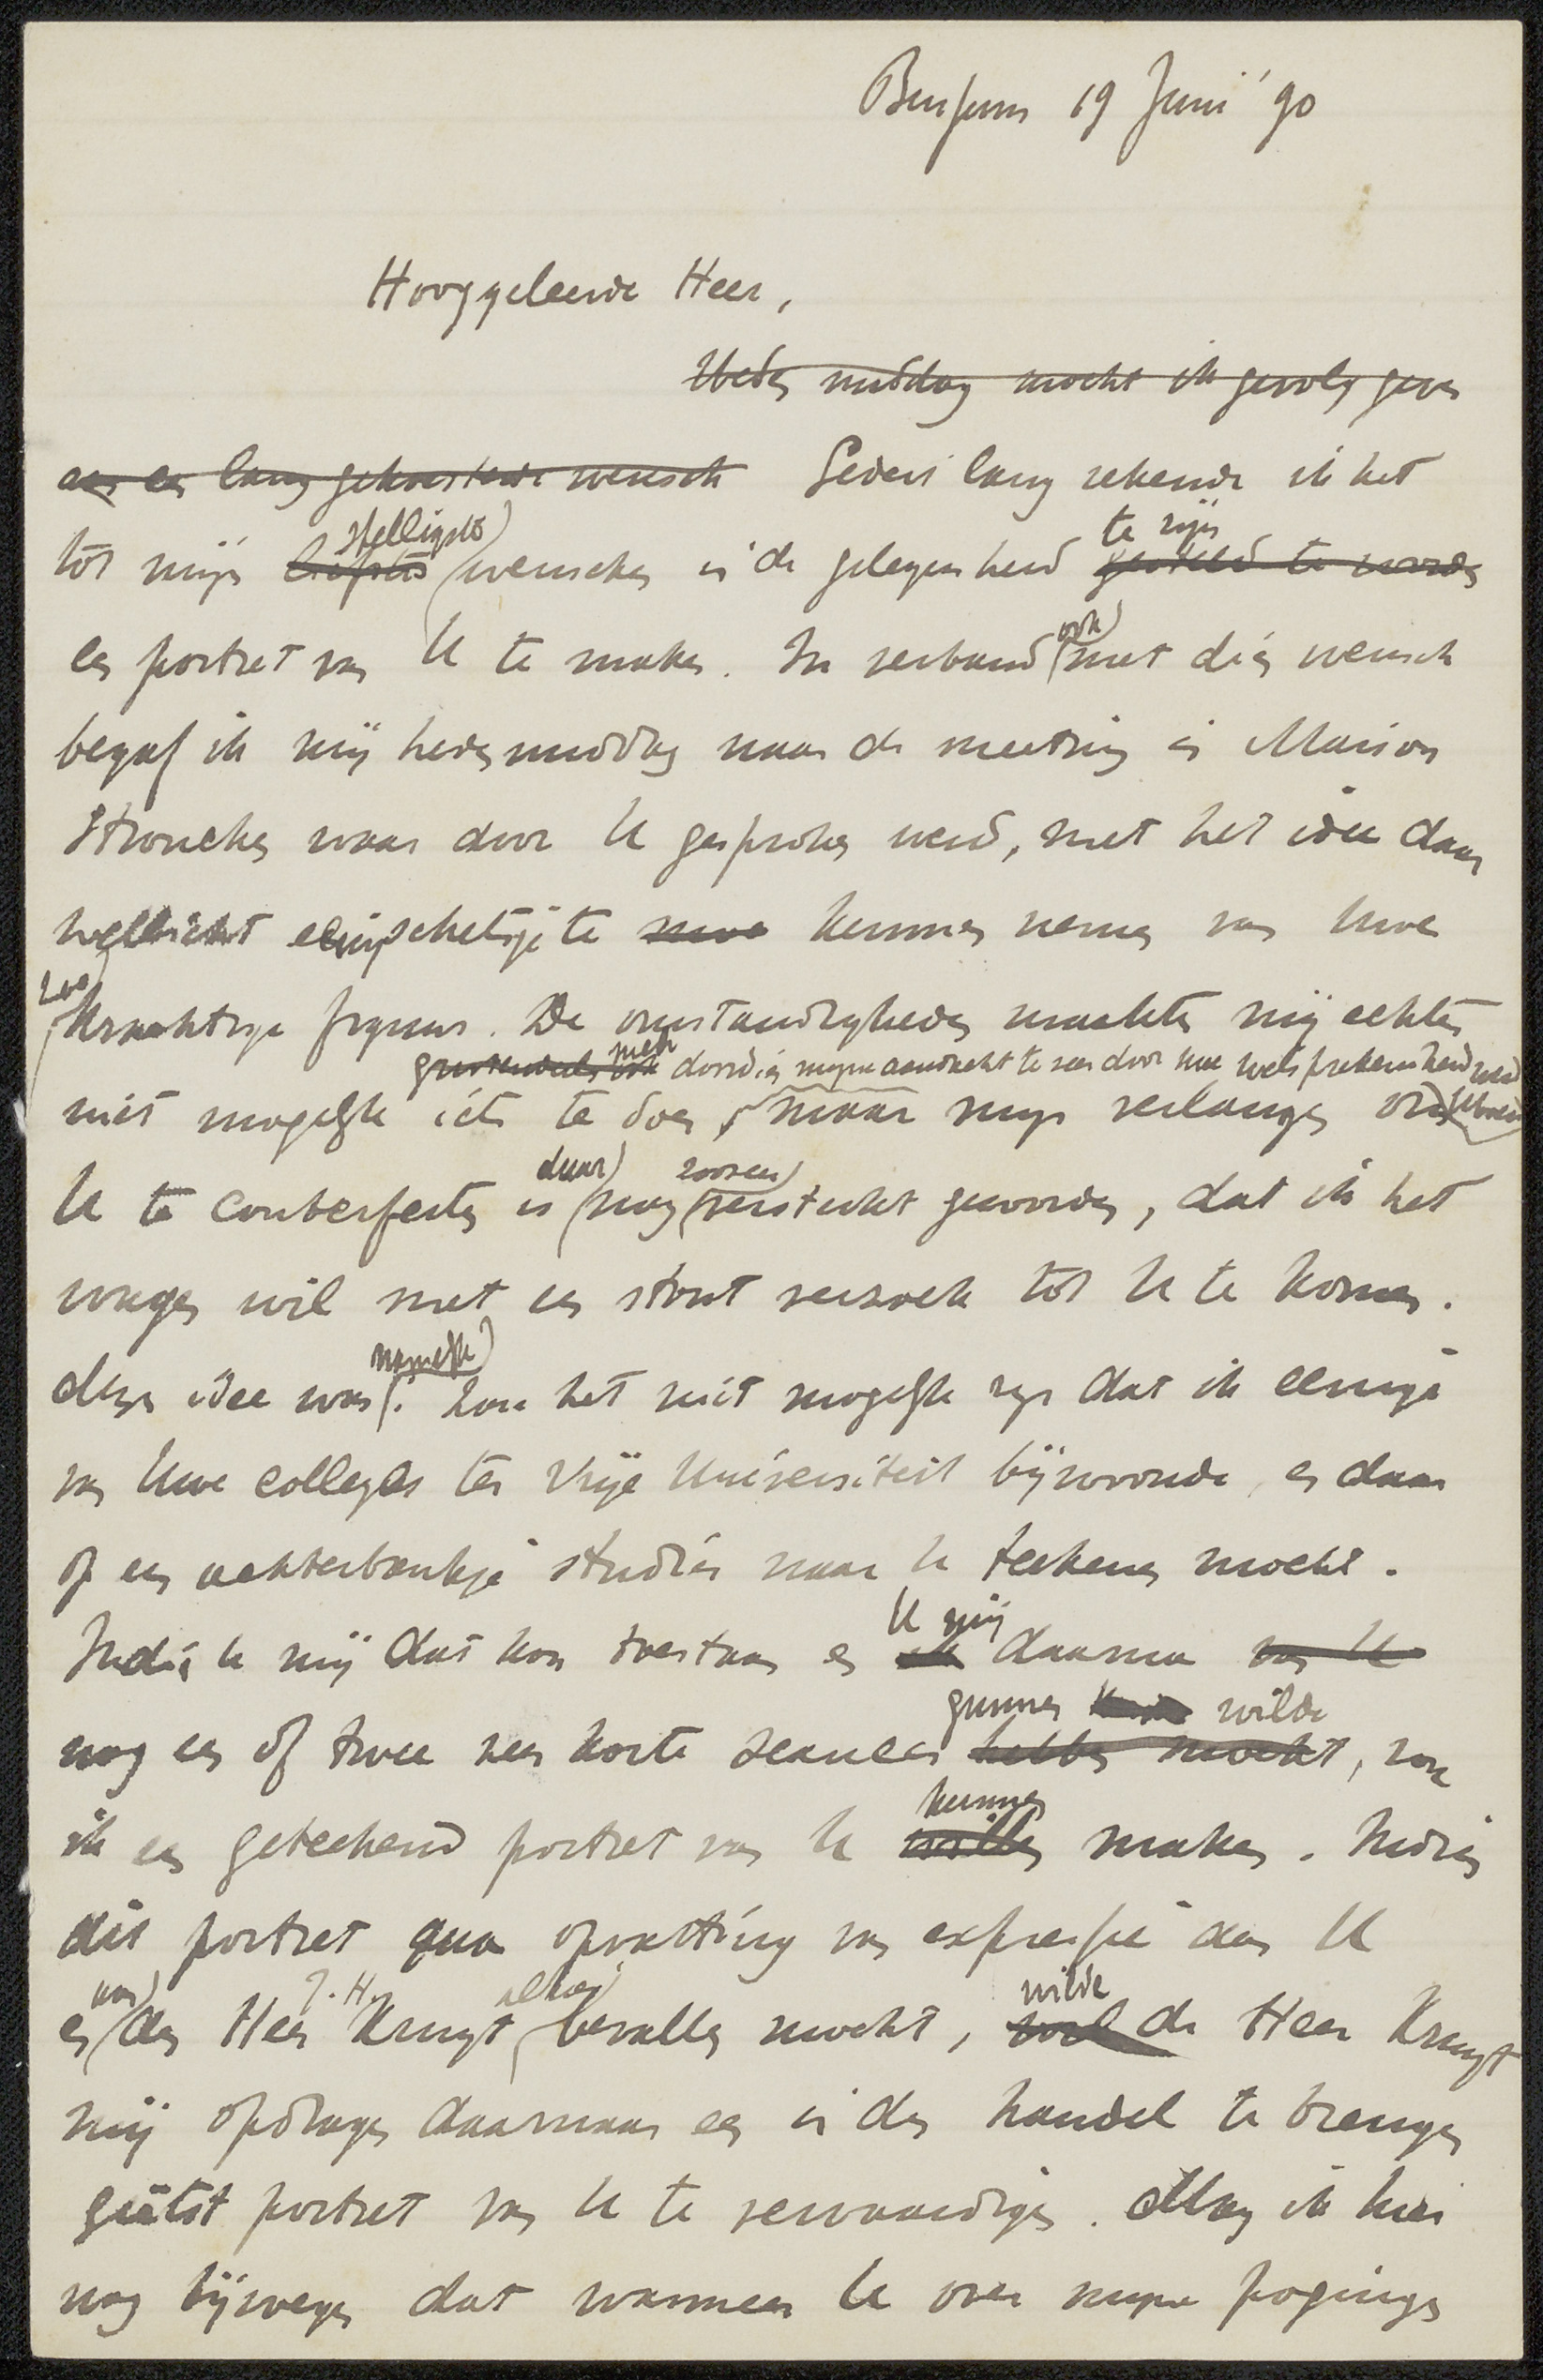 Bussum 19 Juni '90
Hooggeleerde Heer,
Heden middag mocht ik gevolg geven
aan een lang gekoesterde wensch Sedert lang rekende ik het
stelligste te zijn
tot mijn liefste wenschen in de gelegenheid gesteld te worden
ook
een portret van U te maken. In verband met dien wensch
begaf ik mij heden middag naar de meeting in Maison
Stroucken waar door U gesproken werd, met het idee daar
wellicht een schetsje te kunnen nemen van Uwe
zoo
krachtige figuur. De omstandigheden maakten mij echter
grootendeels ook doordien mijne aandacht te zeer door uwe welsprekendheid werd
niet mogelijk iets te doen, maar mijn verlangen om
daar zoozeer
U te conterfeiten is nog versterkt geworden, dat ik het
wagen wil met een stout verzoek tot U te komen.
namelijk
deze idee was: zou het niet mogelijk zijn dat ik eenige
van Uwe colleges ter Vrije Universiteit bijwoonde, en daar
op een achterbankje studies naar U teekenen mocht.
U mij
Indien U mij dat kon toestaan en ik daarna van U
gunnen wilde
nog een of twee zeer korte seances hebben mocht, zou
kunnen
ik een geteekend portret van U willen maken. Indien
dit portret qua opvatting van expressie dan U
J. H.
en den Heer Kruyt bevallen mocht,
wilde
de Heer Kruyt
mij opdragen daarnaar een in den handel te brengen
geëtst portret van U te vervaardigen. Mag ik hier
nog bijvoegen dat wanneer U over mijne pogingen